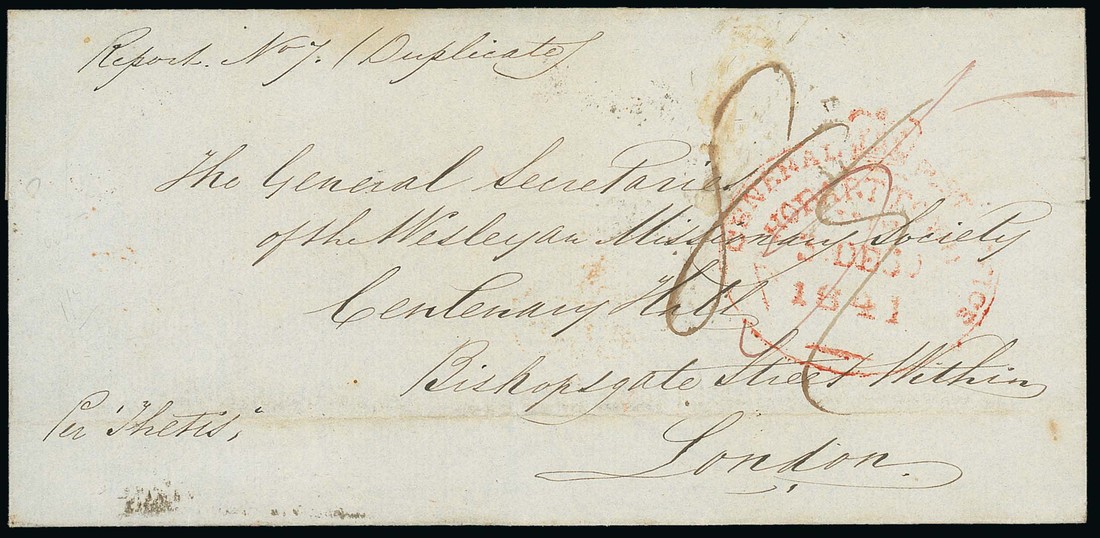 Report. No 7. (Duplicate)
The General Secretaries
of the Wesleyan Missionary Society
Centenary Hall
Bishopsgate Street Within
London.
Per "Thetis"
8
GENERAL POST OFFICE
HOBART TOWN
DE
1841